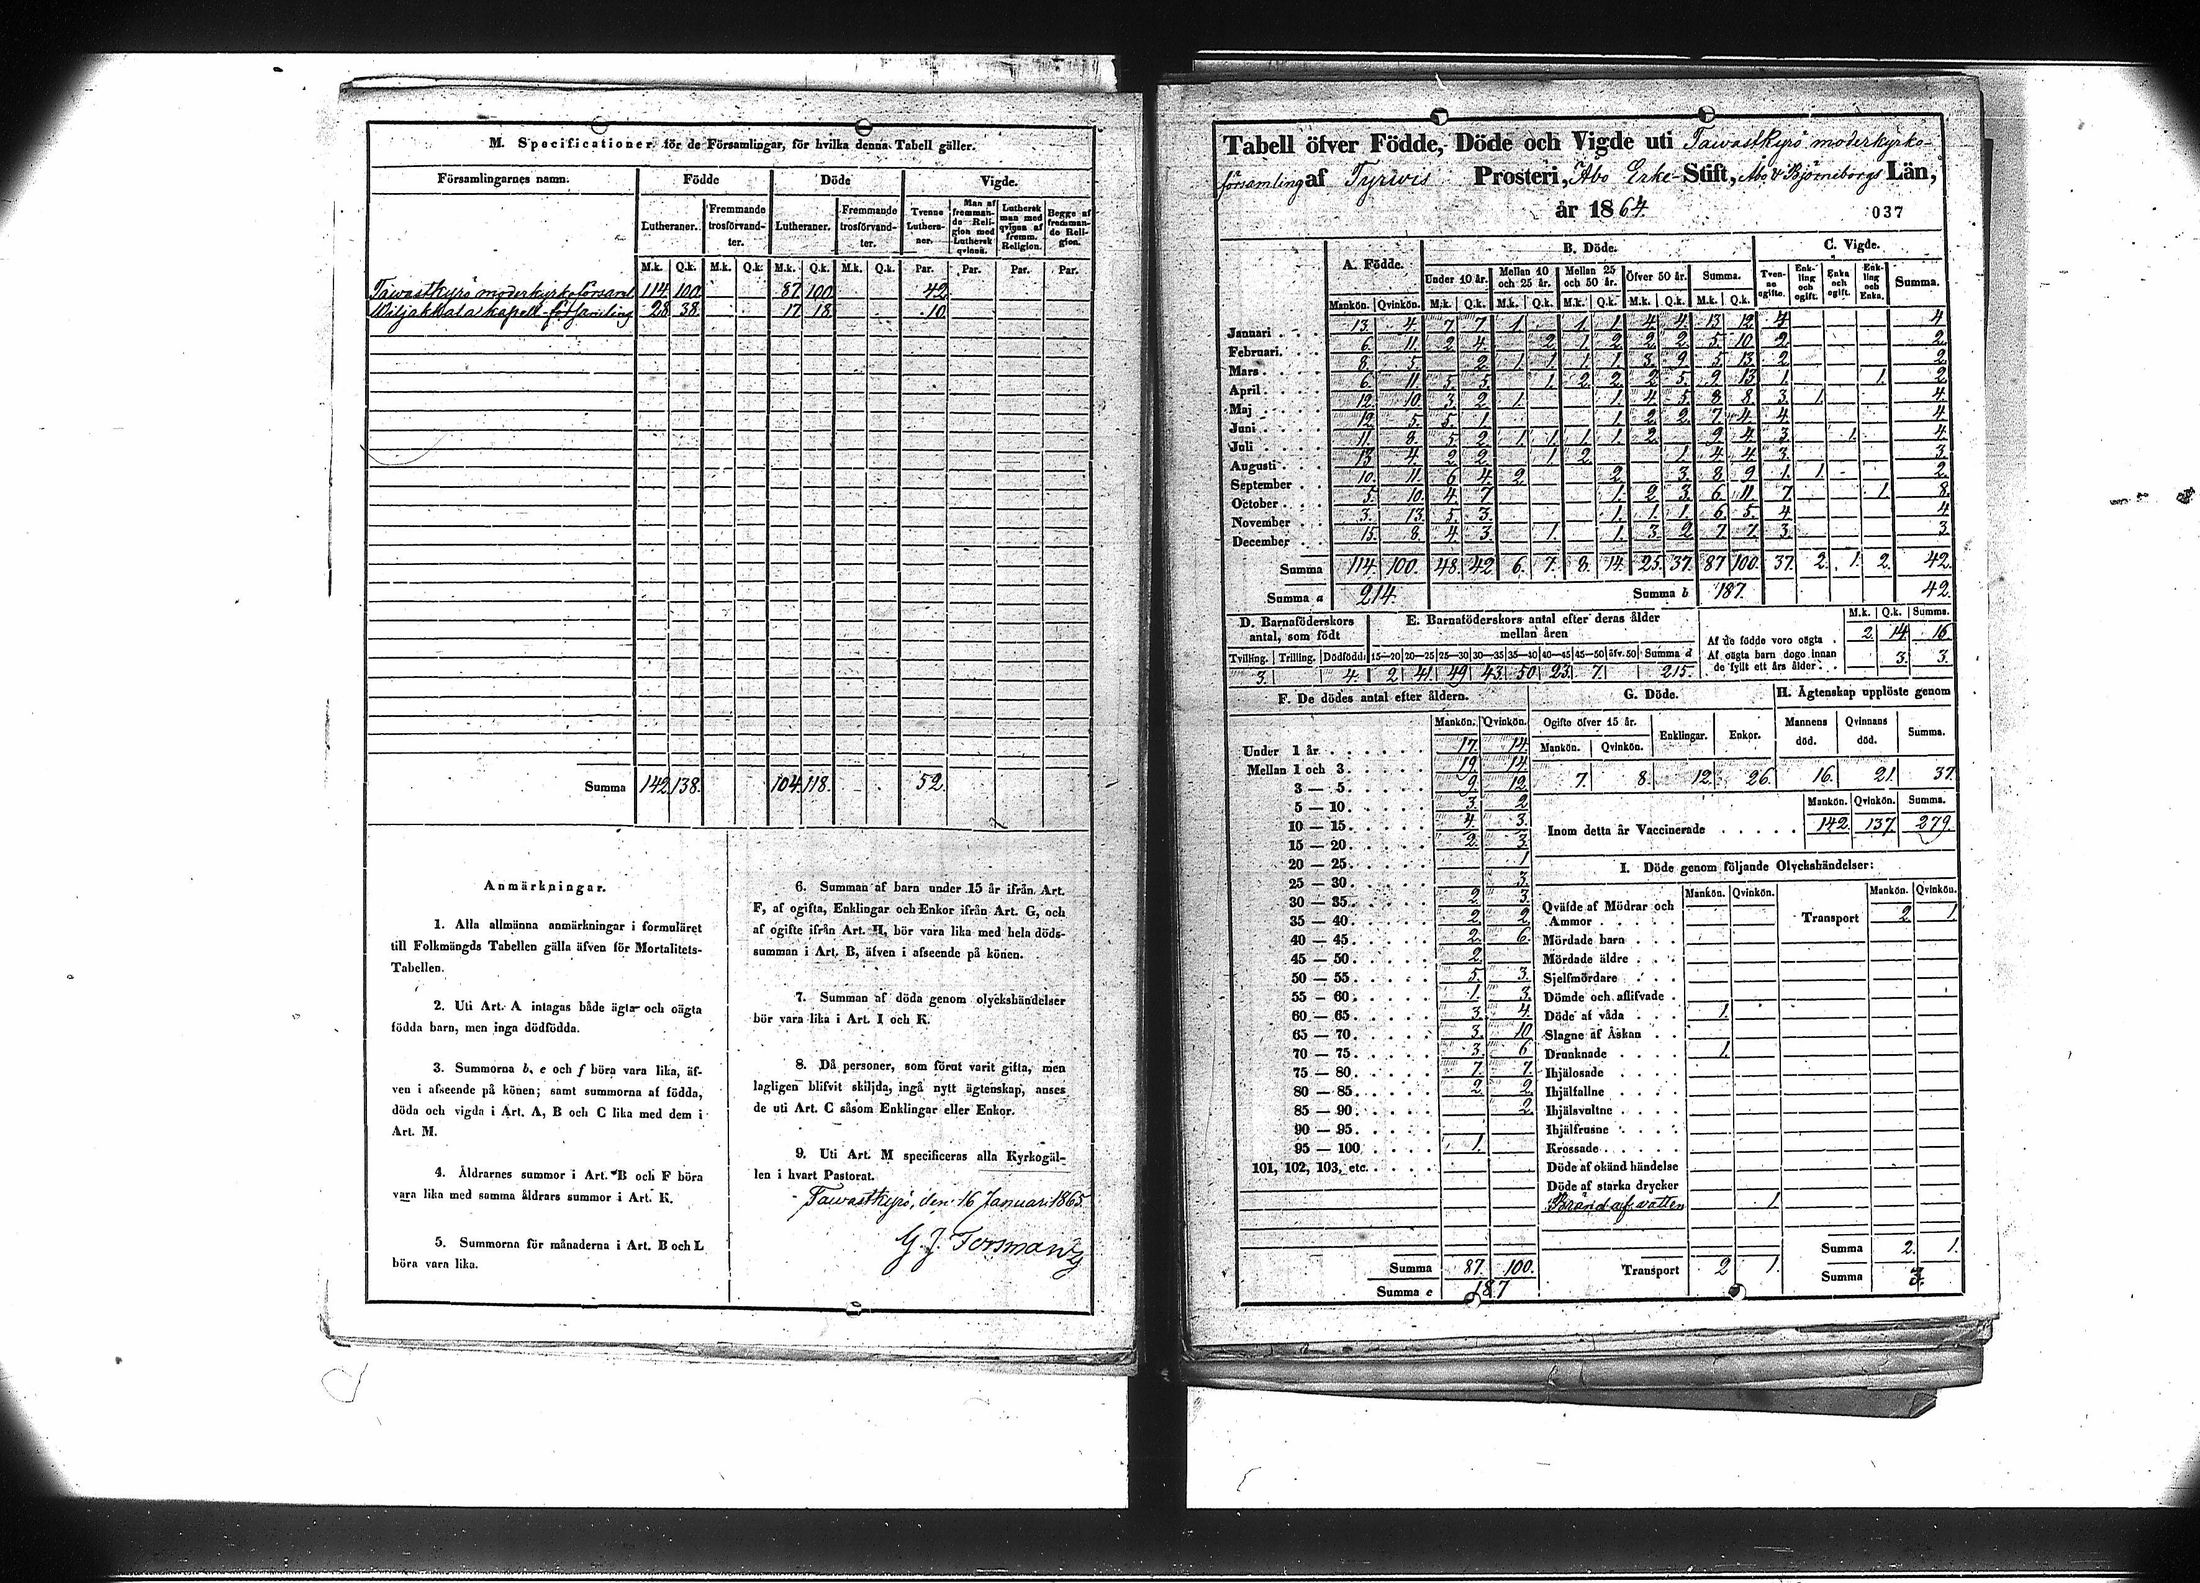 M. Specificationer för de Församlingar, för hvilka denna Tabell gäller.
Församlingarnes namn. Födde Döde Vigde.
Lutheraner. Fremmande trosförvandter. Lutheraner. Fremmande trosförvandter. Tvenne Lutheraner. Man af fremmande Religion med Luthersk qvinna. Luthersk man med qvinna af fremm. Religion. Begge af fremmande Religion.
M.k. Q.k. M.k. Q.k. M.k. Q.k. M.k. Q.k. Par. Par. Par. Par.
Tawastkyrö moderkyrkoförsaml 114 100 87 100 42
Wiljakkala kapell-församling 28 38 17 18 10
Summa 142 138 104 118 52
Anmärkningar.
1. Alla allmänna anmärkningar i formuläret
till Folkmängds Tabellen gälla äfven för Mortalitets-
Tabellen.
2. Uti Art. A intagas både ägta och oägta
födda barn, men inga dödfödda.
3. Summorna b, e och f böra vara lika, äf-
ven i afseende på könen; samt summorna af födda,
döda och vigda i Art. A, B och C lika med dem i
Art. M.
4. Åldrarnes summor i Art. B och F böra
vara lika med samma åldrars summor i Art. K.
5. Summorna för månaderna i Art. B och L
böra vara lika.
6. Summan af barn under 15 år ifrån Art.
F, af ogifta, Enklingar och Enkor ifrån Art. G, och
af ogifte ifrån Art. H, bör vara lika med hela döds-
summan i Art. B, äfven i afseende på könen.
7. Summan af döda genom olyckshändelser
bör vara lika i Art. I och K.
8. Då personer, som förut varit gifta, men
lagligen blifvit skiljda, ingå nytt ägtenskap, anses
de uti Art. C såsom Enklingar eller Enkor.
9. Uti Art. M specificeras alla Kyrkogäl-
len i hvart Pastorat.
Tawastkyrö, den 16 Januari 1865.
G. J. Forsman
Tabell öfver Födde, Döde och Vigde uti Tawastkyrö moderkyrko-
församling af Tyrwis Prosteri, Åbo Erke-Stift, Åbo & Björneborgs Län,
år 1864. 037
A. Födde. B. Döde. C. Vigde.
Under 10 år. Mellan 10 och 25 år. Mellan 25 och 50 år. Öfver 50 år. Summa. Tvenne ogifte. Enkling och ogift. Enka och ogift. Enkling och Enka. Summa.
Mankön. Qvinkön. M.k. Q.k. M.k. Q.k. M.k. Q.k. M.k. Q.k. M.k. Q.k.
Januari 13 4 7 7 1 1 1 4 4 13 12 4 4
Februari 6 11 2 4 2 1 2 2 2 5 10 2 2
Mars 8 5 2 1 1 1 1 8 9 5 13 2 2
April 6 11 5 5 1 2 2 2 5 9 13 1 1 2
Maj 12 10 3 2 1 1 4 5 8 8 3 1 4
Juni 12 5 5 1 1 2 2 7 4 4 4
Juli 11 8 5 2 1 1 1 1 2 9 4 3 1 4
Augusti 13 4 2 2 1 2 1 4 4 3 3
September 10 11 6 4 2 2 3 8 9 1 1 2
October 5 10 4 7 1 2 3 6 11 7 1 8
November 3 13 5 3 1 1 1 6 5 4 4
December 15 8 4 3 1 1 3 2 7 7 3 3
Summa 114 100 48 42 6 7 8 14 25 37 87 100 37 2 1 2 42
Summa a 214 Summa b 187 42
D. Barnaföderskors antal, som födt
Tvilling. Trilling. Dödfödd
3 4
E. Barnaföderskors antal efter deras ålder mellan åren
15—20 20—25 25—30 30—35 35—40 40—45 45—50 öfv. 50 Summa d
2 41 49 43 50 23 7 215
M.k. Q.k. Summa.
Af de födde voro oägta 2 14 16
Af oägta barn dogo innan de fyllt ett års ålder 3 3
F. De dödes antal efter åldern.
Mankön. Qvinkön.
Under 1 år 17 14
Mellan 1 och 3 19 14
3 — 5 9 12
5 — 10 3 2
10 — 15 4 3
15 — 20 2 3
20 — 25 1
25 — 30 3
30 — 35 2 3
35 — 40 2 2
40 — 45 2 6
45 — 50 2
50 — 55 5 3
55 — 60 1 3
60 — 65 3 4
65 — 70 3 10
70 — 75 3 6
75 — 80 7 7
80 — 85 2 2
85 — 90 2
90 — 95
95 — 100 1
101, 102, 103, etc.
Summa 87 100
Summa e 187
G. Döde.
Ogifte öfver 15 år. Enklingar. Enkor.
Mankön. Qvinkön.
7 8 12 26
H. Ägtenskap upplöste genom
Mannens död. Qvinnans död. Summa.
16 21 37
Mankön. Qvinkön. Summa.
Inom detta år Vaccinerade 142 137 279
I. Döde genom följande Olyckshändelser:
Mankön. Qvinkön. Mankön. Qvinkön.
Qväfde af Mödrar och Ammor Transport 2 1
Mördade barn
Mördade äldre
Sjelfmördare
Dömde och aflifvade
Döde af våda 1
Slagne af Åskan
Drunknade 1
Ihjälosade
Ihjälfallne
Ihjälsvultne
Ihjälfrusne
Krossade
Döde af okänd händelse
Döde af starka drycker
Bränd af vatten 1
Transport 2 1
Summa 2 1
Summa 3